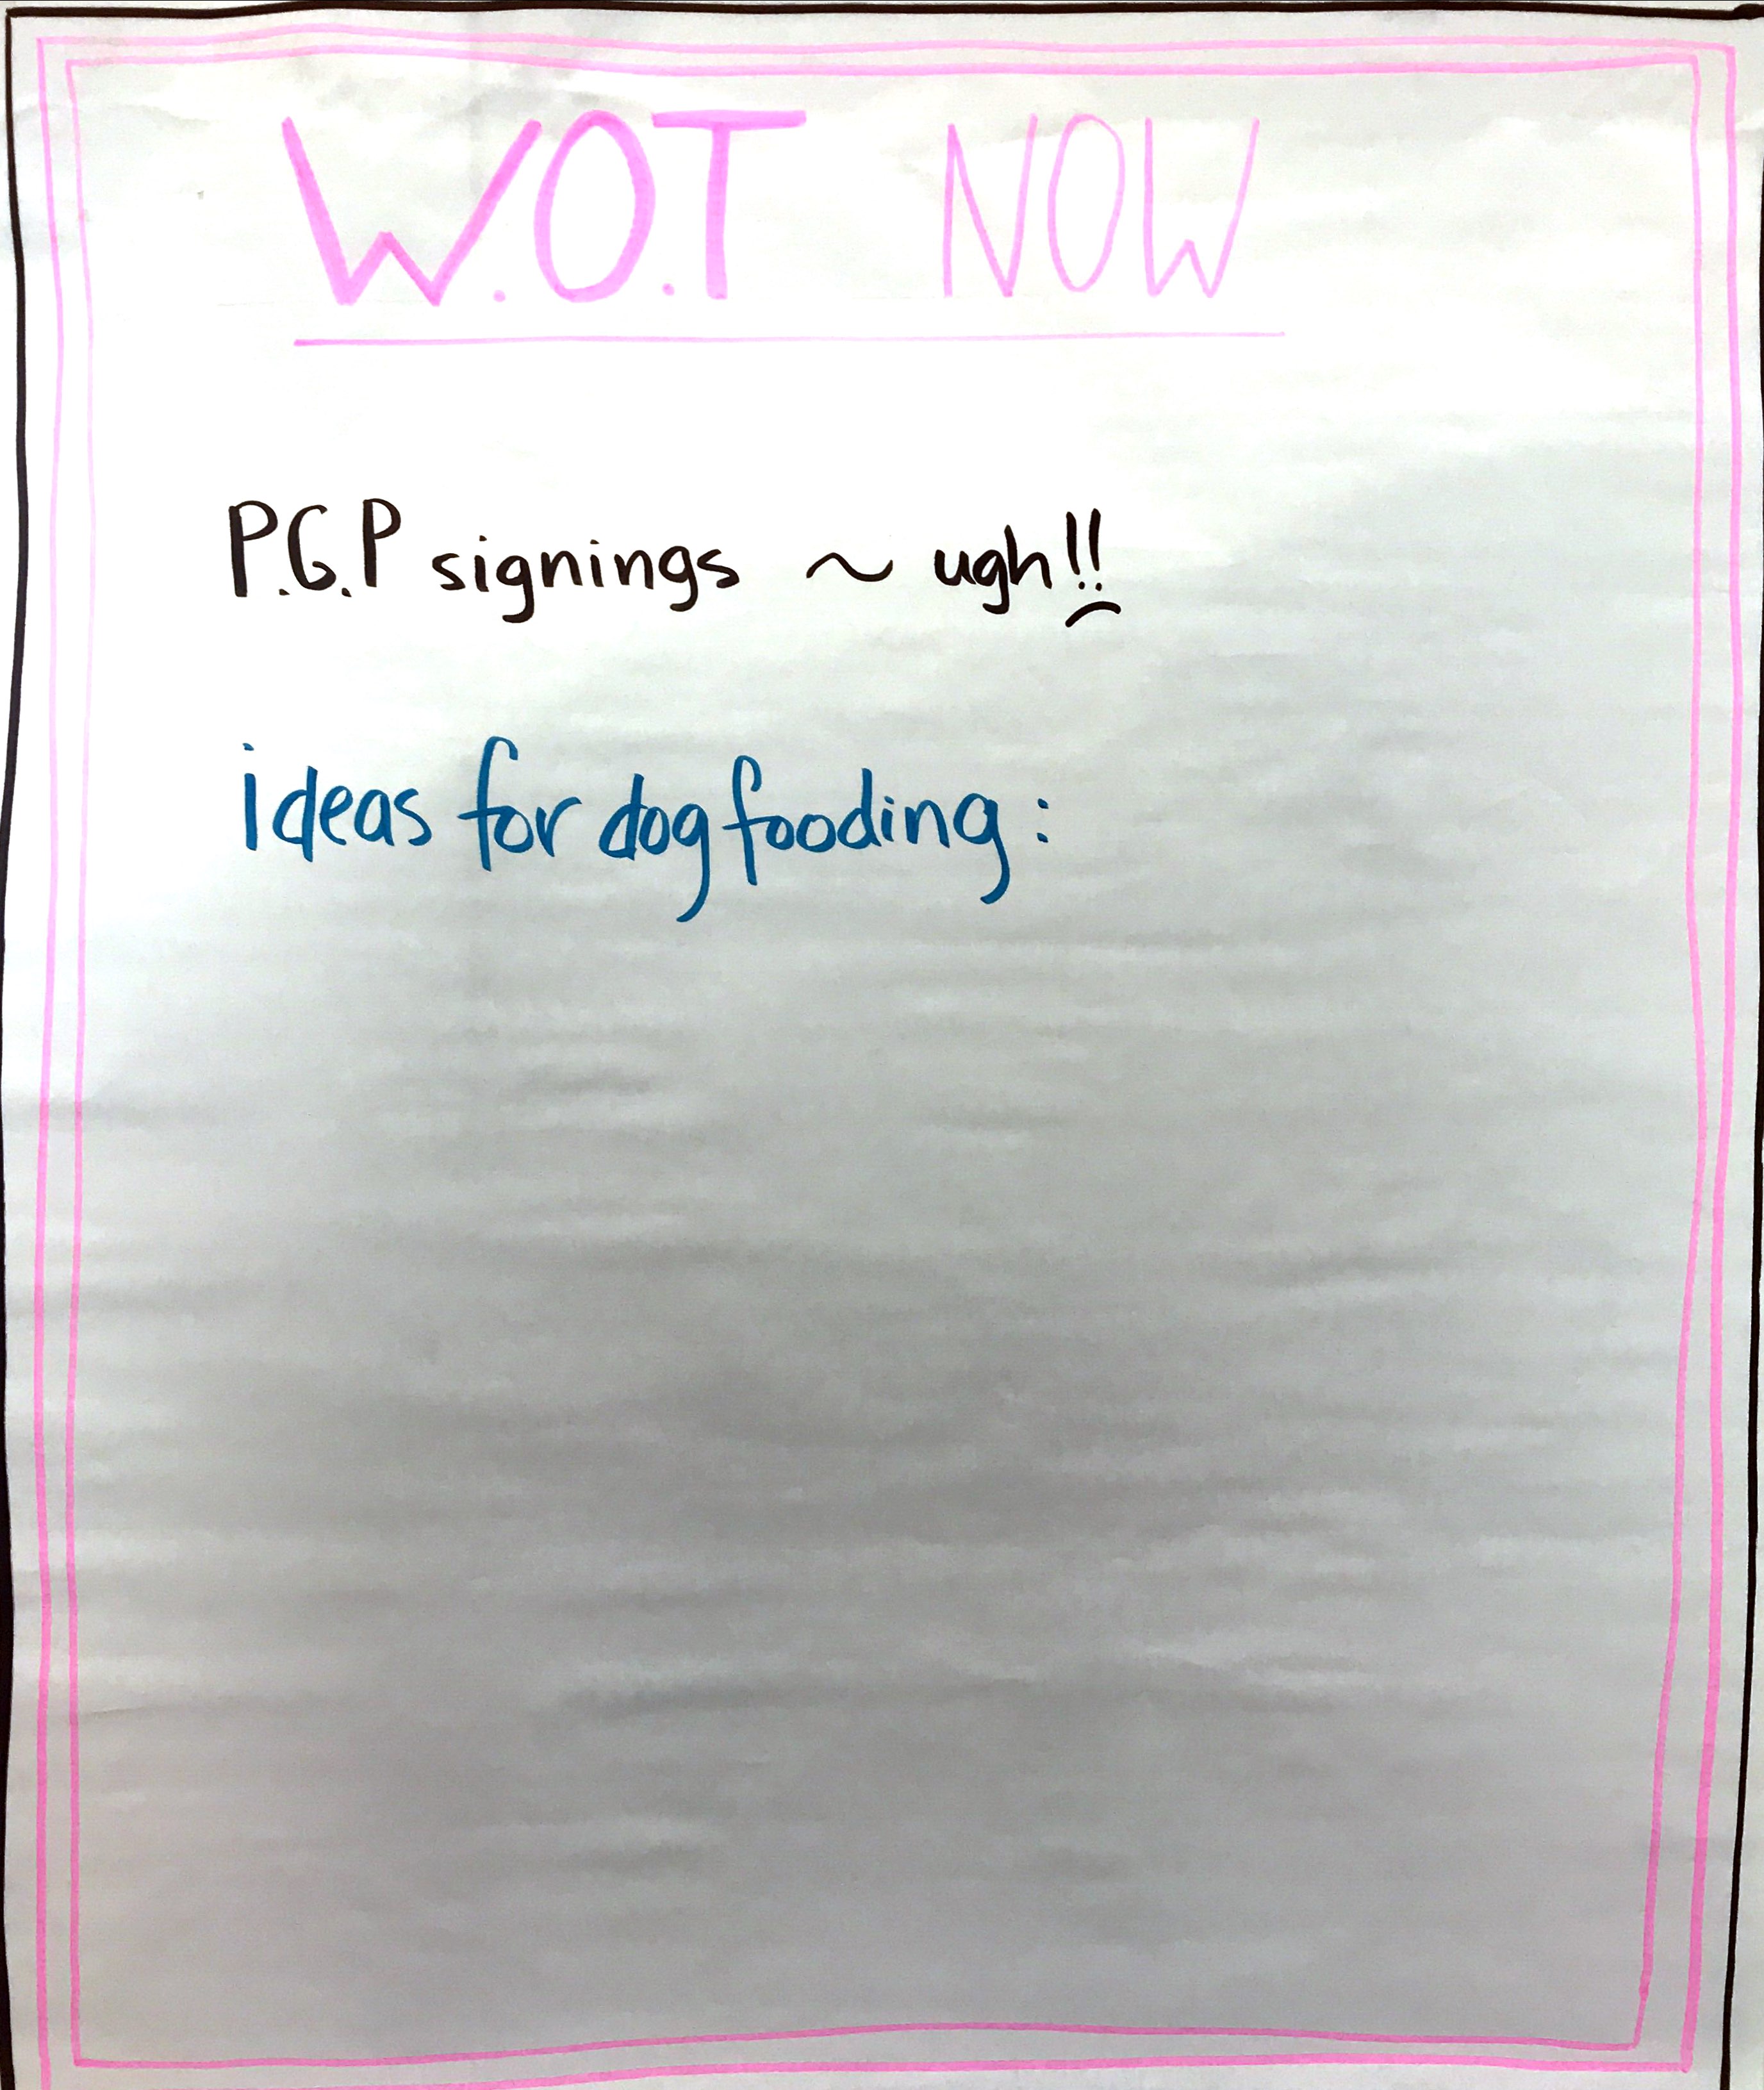 W.O.T NOW
P.G.P signings ~ ugh!!
ideas for dog fooding: